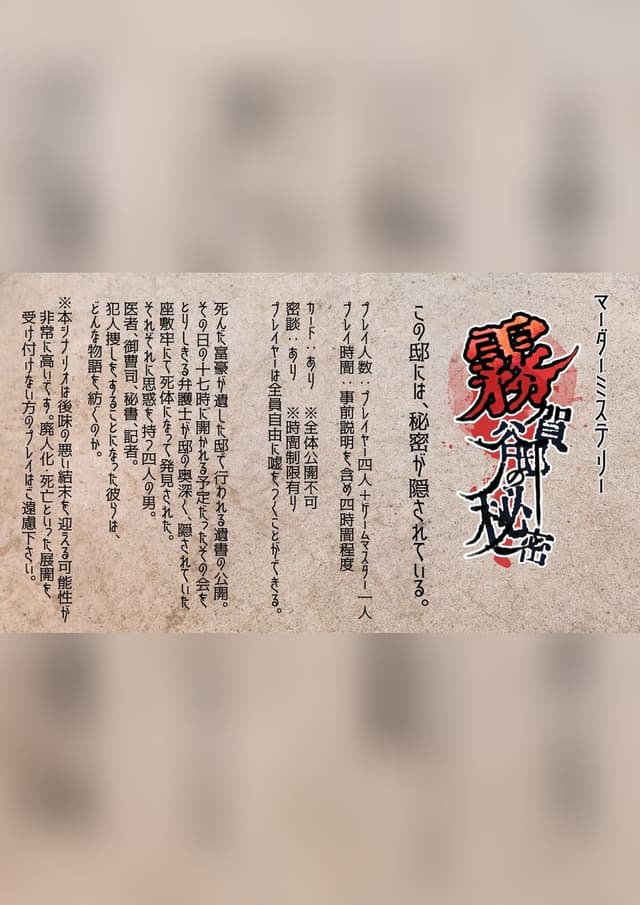 マーダーミステリー
霧賀谷邸の秘密
この邸には、秘密が隠されている。
プレイ人数：プレイヤー四人＋ゲームマスター一人
プレイ時間：事前説明を含め四時間程度
カード：あり　※全体公開不可
密談：あり　※時間制限有り
プレイヤーは全員自由に嘘をつくことができる。
死んだ富豪が遺した邸で行われる遺書の公開。
その日の十七時に開かれる予定だったその会を
とりしきる弁護士が邸の奥深く、隠されていた
座敷牢にて死体になって発見された。
それぞれに思惑を持つ四人の男。
医者、御曹司、秘書、記者。
犯人捜しをすることになった彼らは、
どんな物語を紡ぐのか。
※本シナリオは後味の悪い結末を迎える可能性が
非常に高いです。廃人化・死亡といった展開を
受け付けない方のプレイはご遠慮下さい。